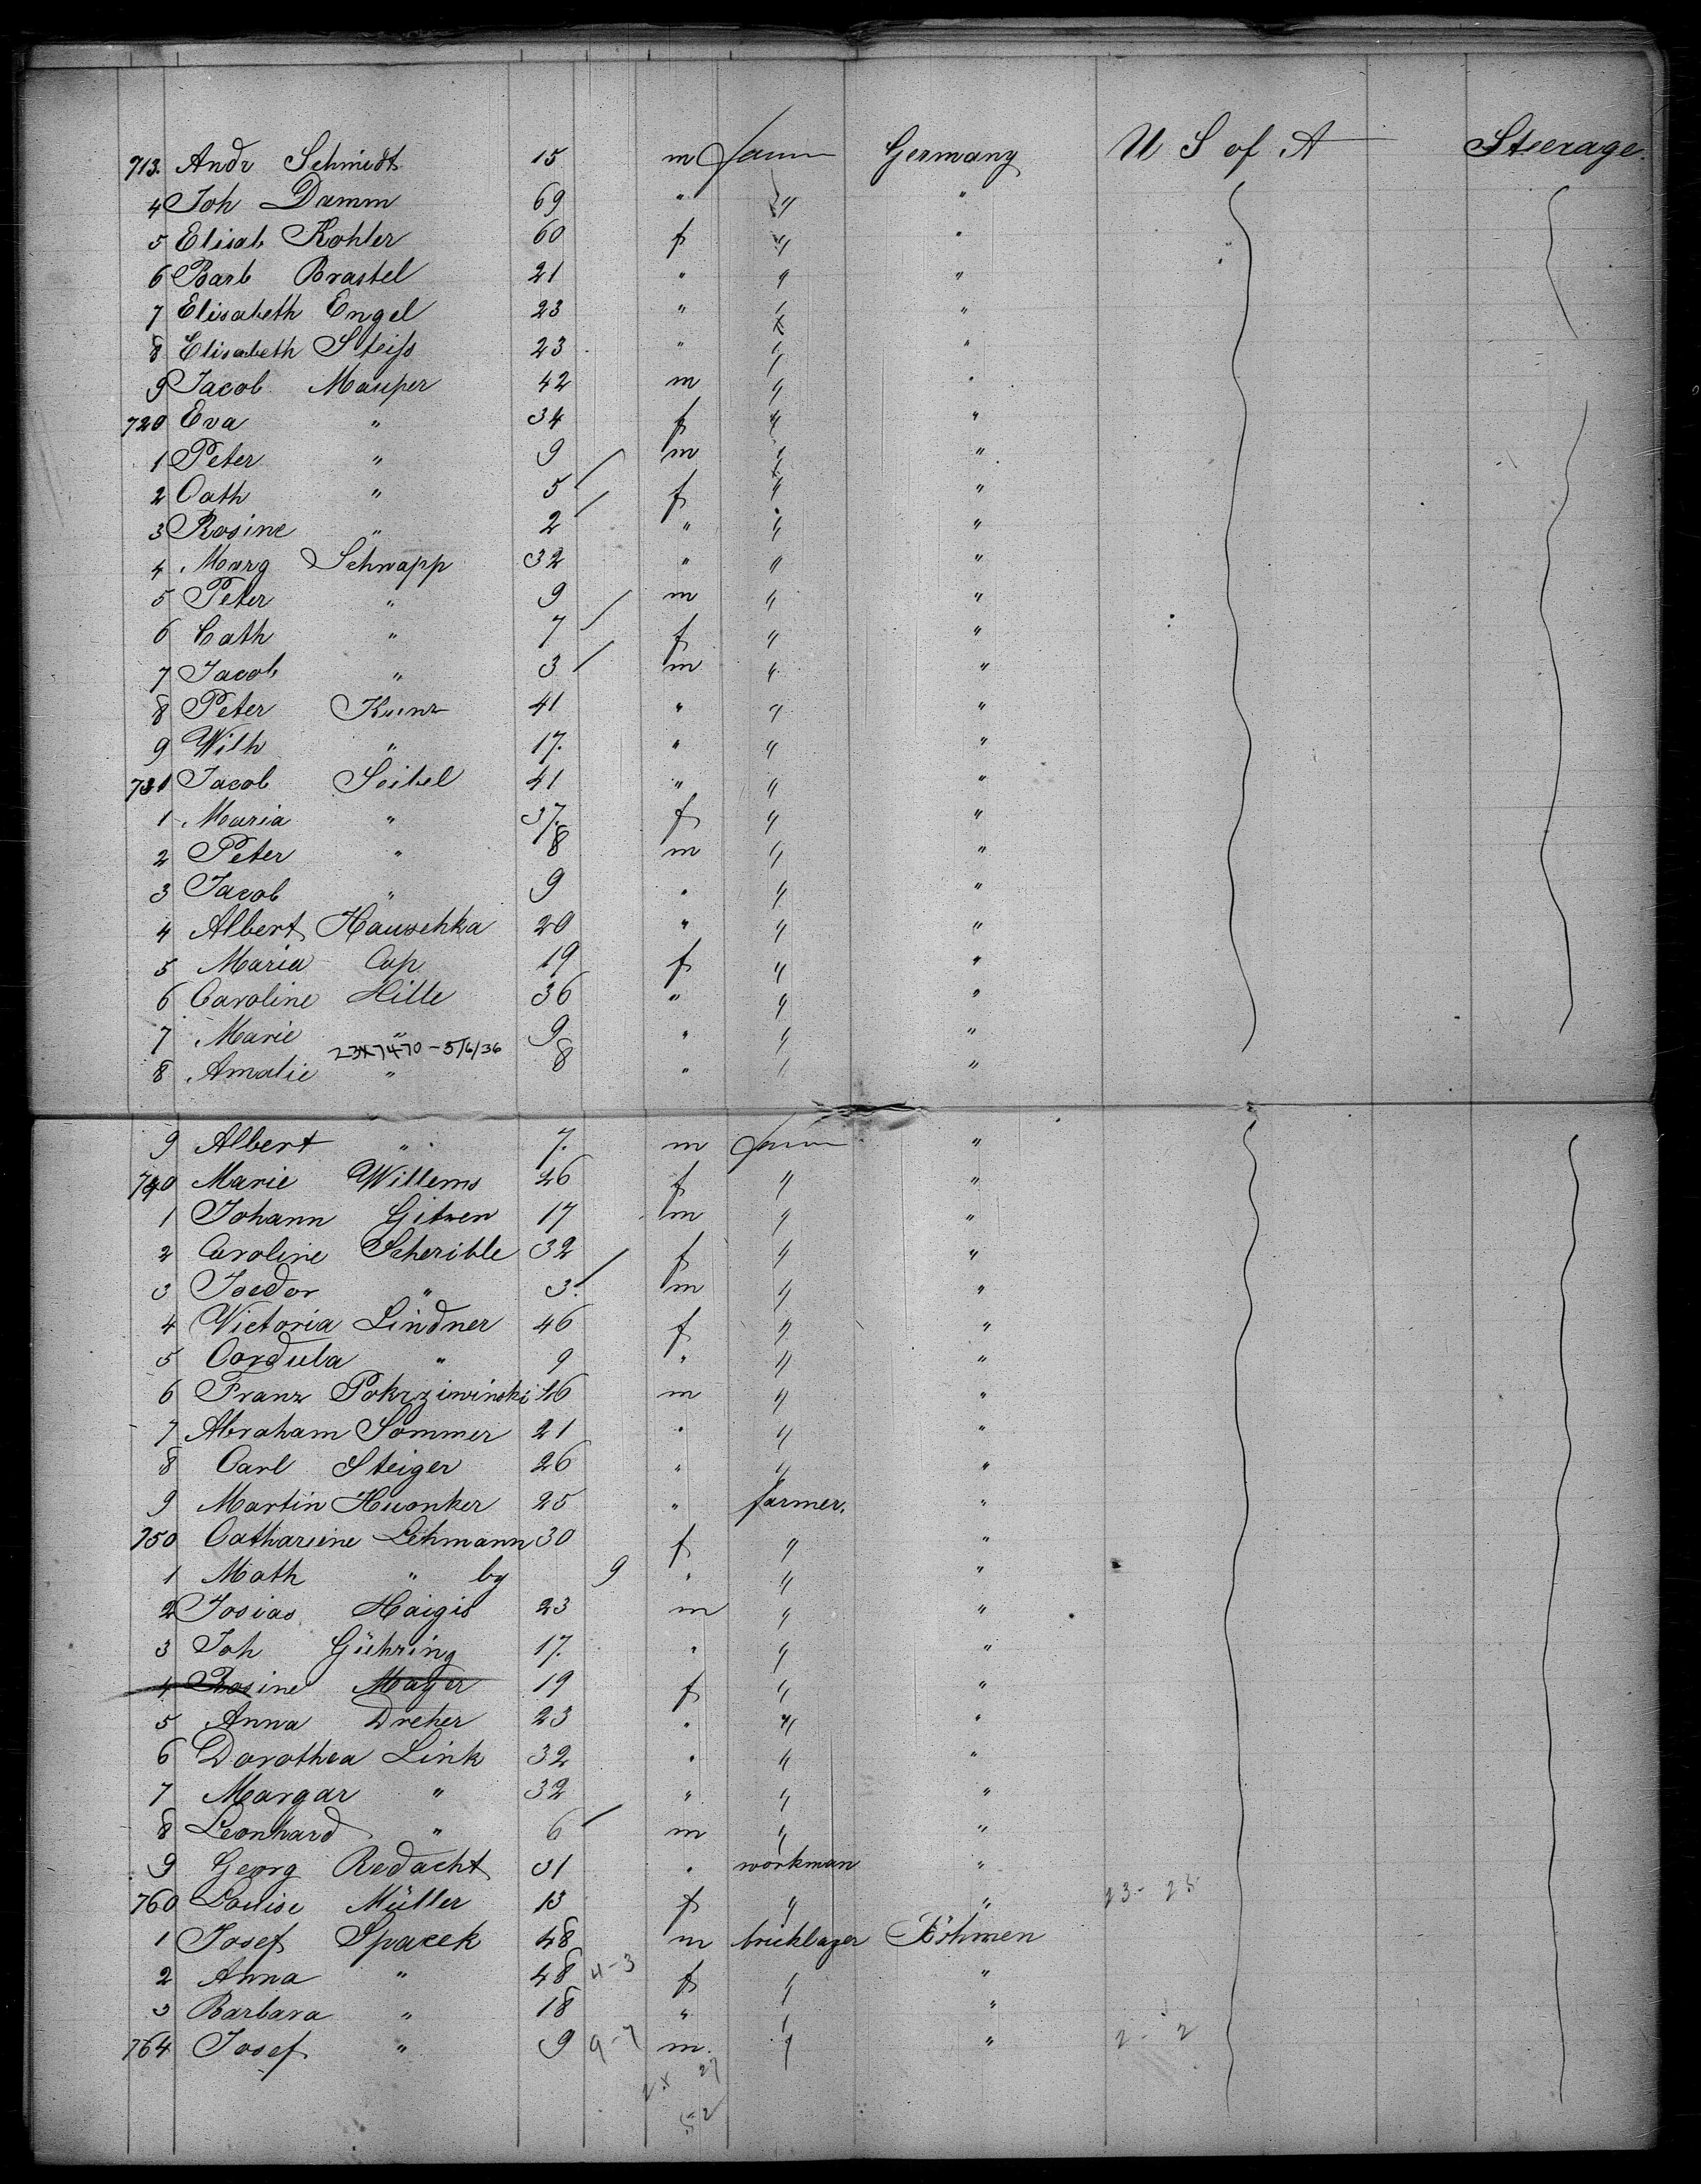 713. Andr Schmidt 15. m farm Germany U S of A Steerage.
4 Joh Damm 69 " " "
5 Elisab Kohler 60 f " "
6 Barb Brastel 21 " " "
7 Elisabeth Engel 23 " " "
8 Elisabeth Steiß 23 " " "
9 Jacob Mauper 42 m " "
720 Eva " 34 f " "
1 Peter " 9 m " "
2 Cath " 5 f " "
3 Rosine " 2 " " "
4 Marg Schnapp 32 " " "
5 Peter " 9 m " "
6 Cath " 7 f " "
7 Jacob " 3 m " "
8 Peter Kunz 41 " " "
9 Wilh " 17. " " "
731 Jacob Seibel 41 " " "
1 Maria " 37. f " "
2 Peter " 8 m " "
3 Jacob " 9 " " "
4 Albert Hauschka 20 " " "
5 Maria Cap 19 f " "
6 Caroline Hille 36 " " "
7 Marie " 9 " " "
23X7470-5/6/36
8 Amalie " 8 " " "
9 Albert " 7. m farm "
740 Marie Willems 26 f " "
1 Johann Gitzen 17 m " "
2 Caroline Scherible 32 f " "
3 Isedor " 3. m " "
4 Victoria Lindner 46 f " "
5 Cordula " 9 " " "
6 Franz Pokrziwinski 26 m " "
7 Abraham Sommer 21 " " "
8 Carl Steiger 26 " " "
9 Martin Huonker 25 " farmer. "
750 Catharine Lehmann 30 f " "
1 Math " by 9 " " "
2 Josias Haigis 23 m " "
3 Joh Gühring 17. " " "
4 Rosine Mayer 19 f " "
5 Anna Dreher 23 " " "
6 Dorothea Link 32 " " "
7 Margar " 32 " " "
8 Leonhard " 6 m " "
9 Georg Redacht 31 " workman "
760 Louise Müller 13 f " " 23- 25
1 Josef Spacek 48 m bricklayer Böhmen
2 Anna " 48 4-3 f " "
3 Barbara " 18 " " "
764 Josef " 9 9-7 m. " " 2- 2
25 27
52